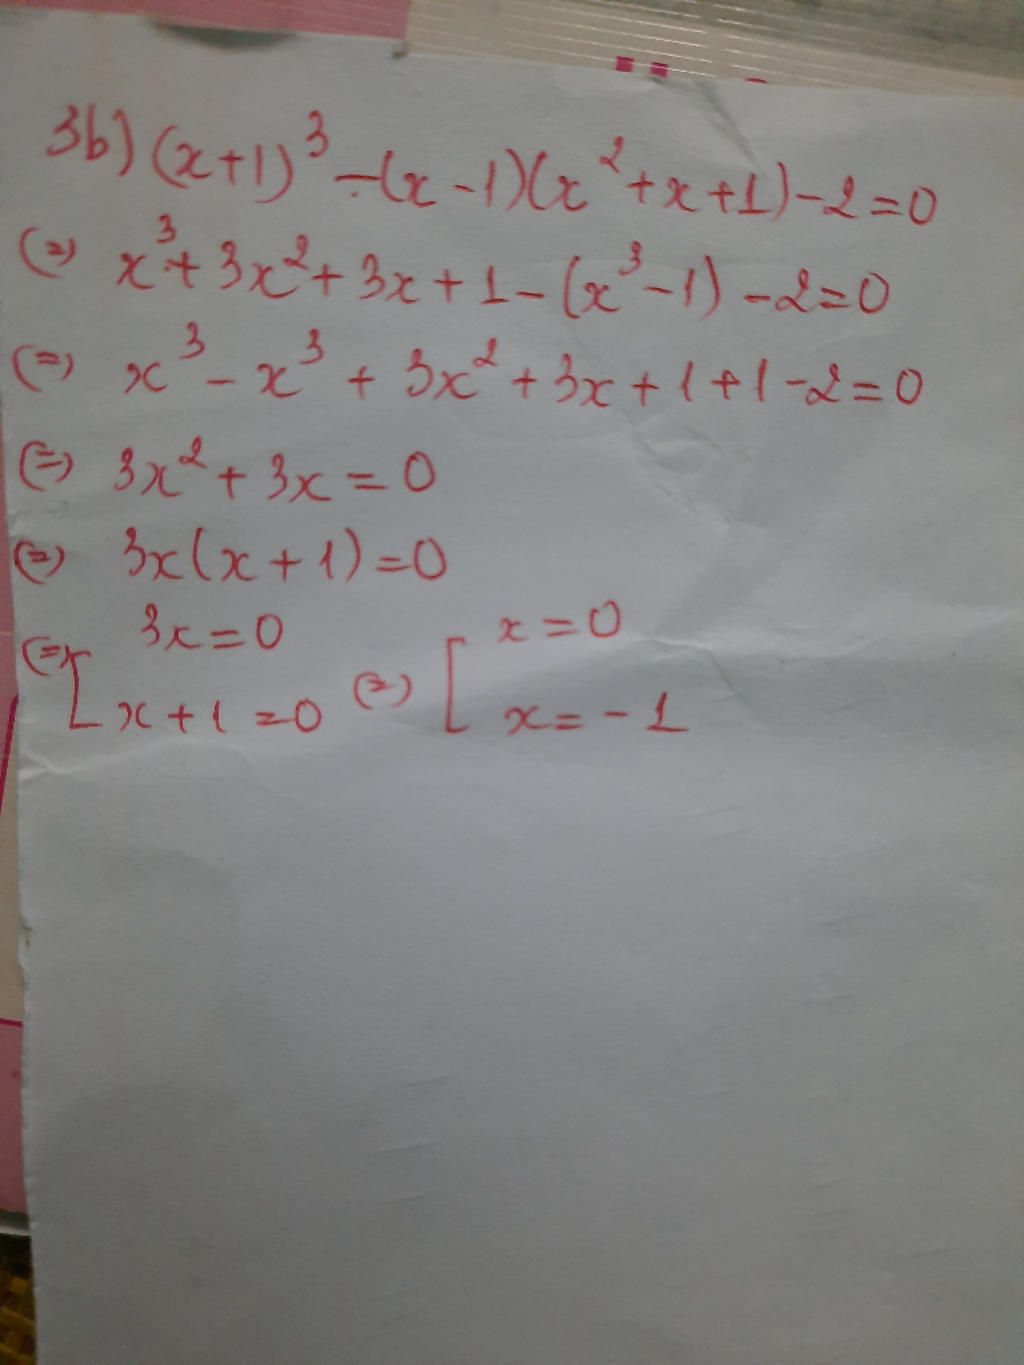 3b) (x+1)³ - (x-1)(x²+x+1) - 2 = 0
(=) x³ + 3x² + 3x + 1 - (x³-1) - 2 = 0
(=) x³ - x³ + 3x² + 3x + 1 + 1 - 2 = 0
(=) 3x² + 3x = 0
(=) 3x(x+1) = 0
(=) [ 3x = 0 (=) [ x = 0
x + 1 = 0 x = -1